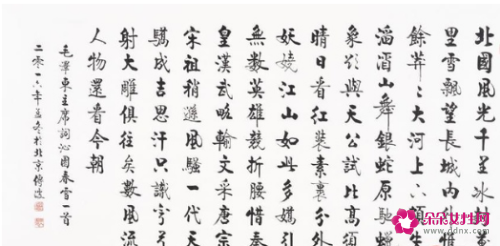 北國風光千里冰封萬
里雪飄望長城內外惟
餘莽莽大河上下頓失
滔滔山舞銀蛇原馳蠟
象欲與天公試比高須
晴日看紅裝素裹分外
妖嬈江山如此多嬌引
無數英雄競折腰惜秦
皇漢武略輸文采唐宗
宋祖稍遜風騷一代天
驕成吉思汗只識彎弓
射大雕俱往矣數風流
人物還看今朝
毛澤東主席詞沁園春雪一首
二零一六年孟冬於北京
朵朵女性网
www.ddnx.com